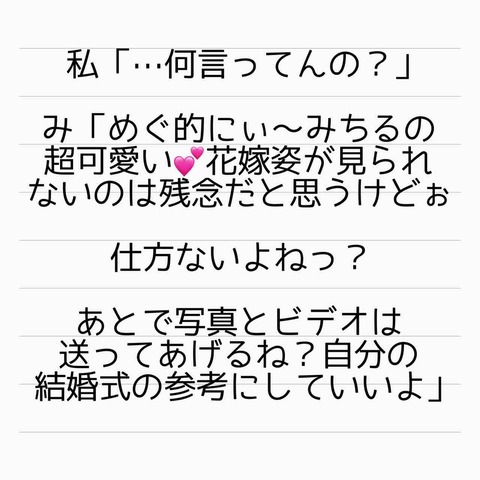 私「…何言ってんの？」
み「めぐ的にぃ～みちるの
超可愛い💕花嫁姿が見られ
ないのは残念だと思うけどぉ
仕方ないよねっ？
あとで写真とビデオは
送ってあげるね？自分の
結婚式の参考にしていいよ」